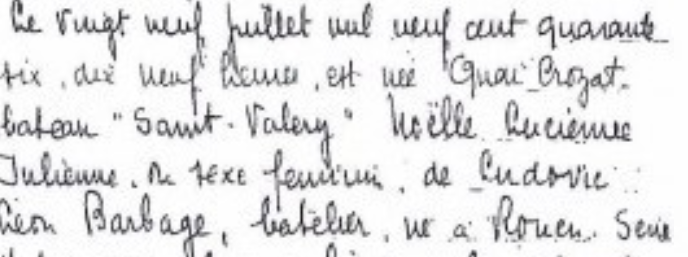 Le vingt neuf juillet mil neuf cent quarante
six, dix neuf heures, est née Quai Crozat.
bateau "Saint-Valery" Noëlle Lucienne
Julienne, du sexe féminin, de Ludovic
Léon Barbage, batelier, né à Rouen. Seine